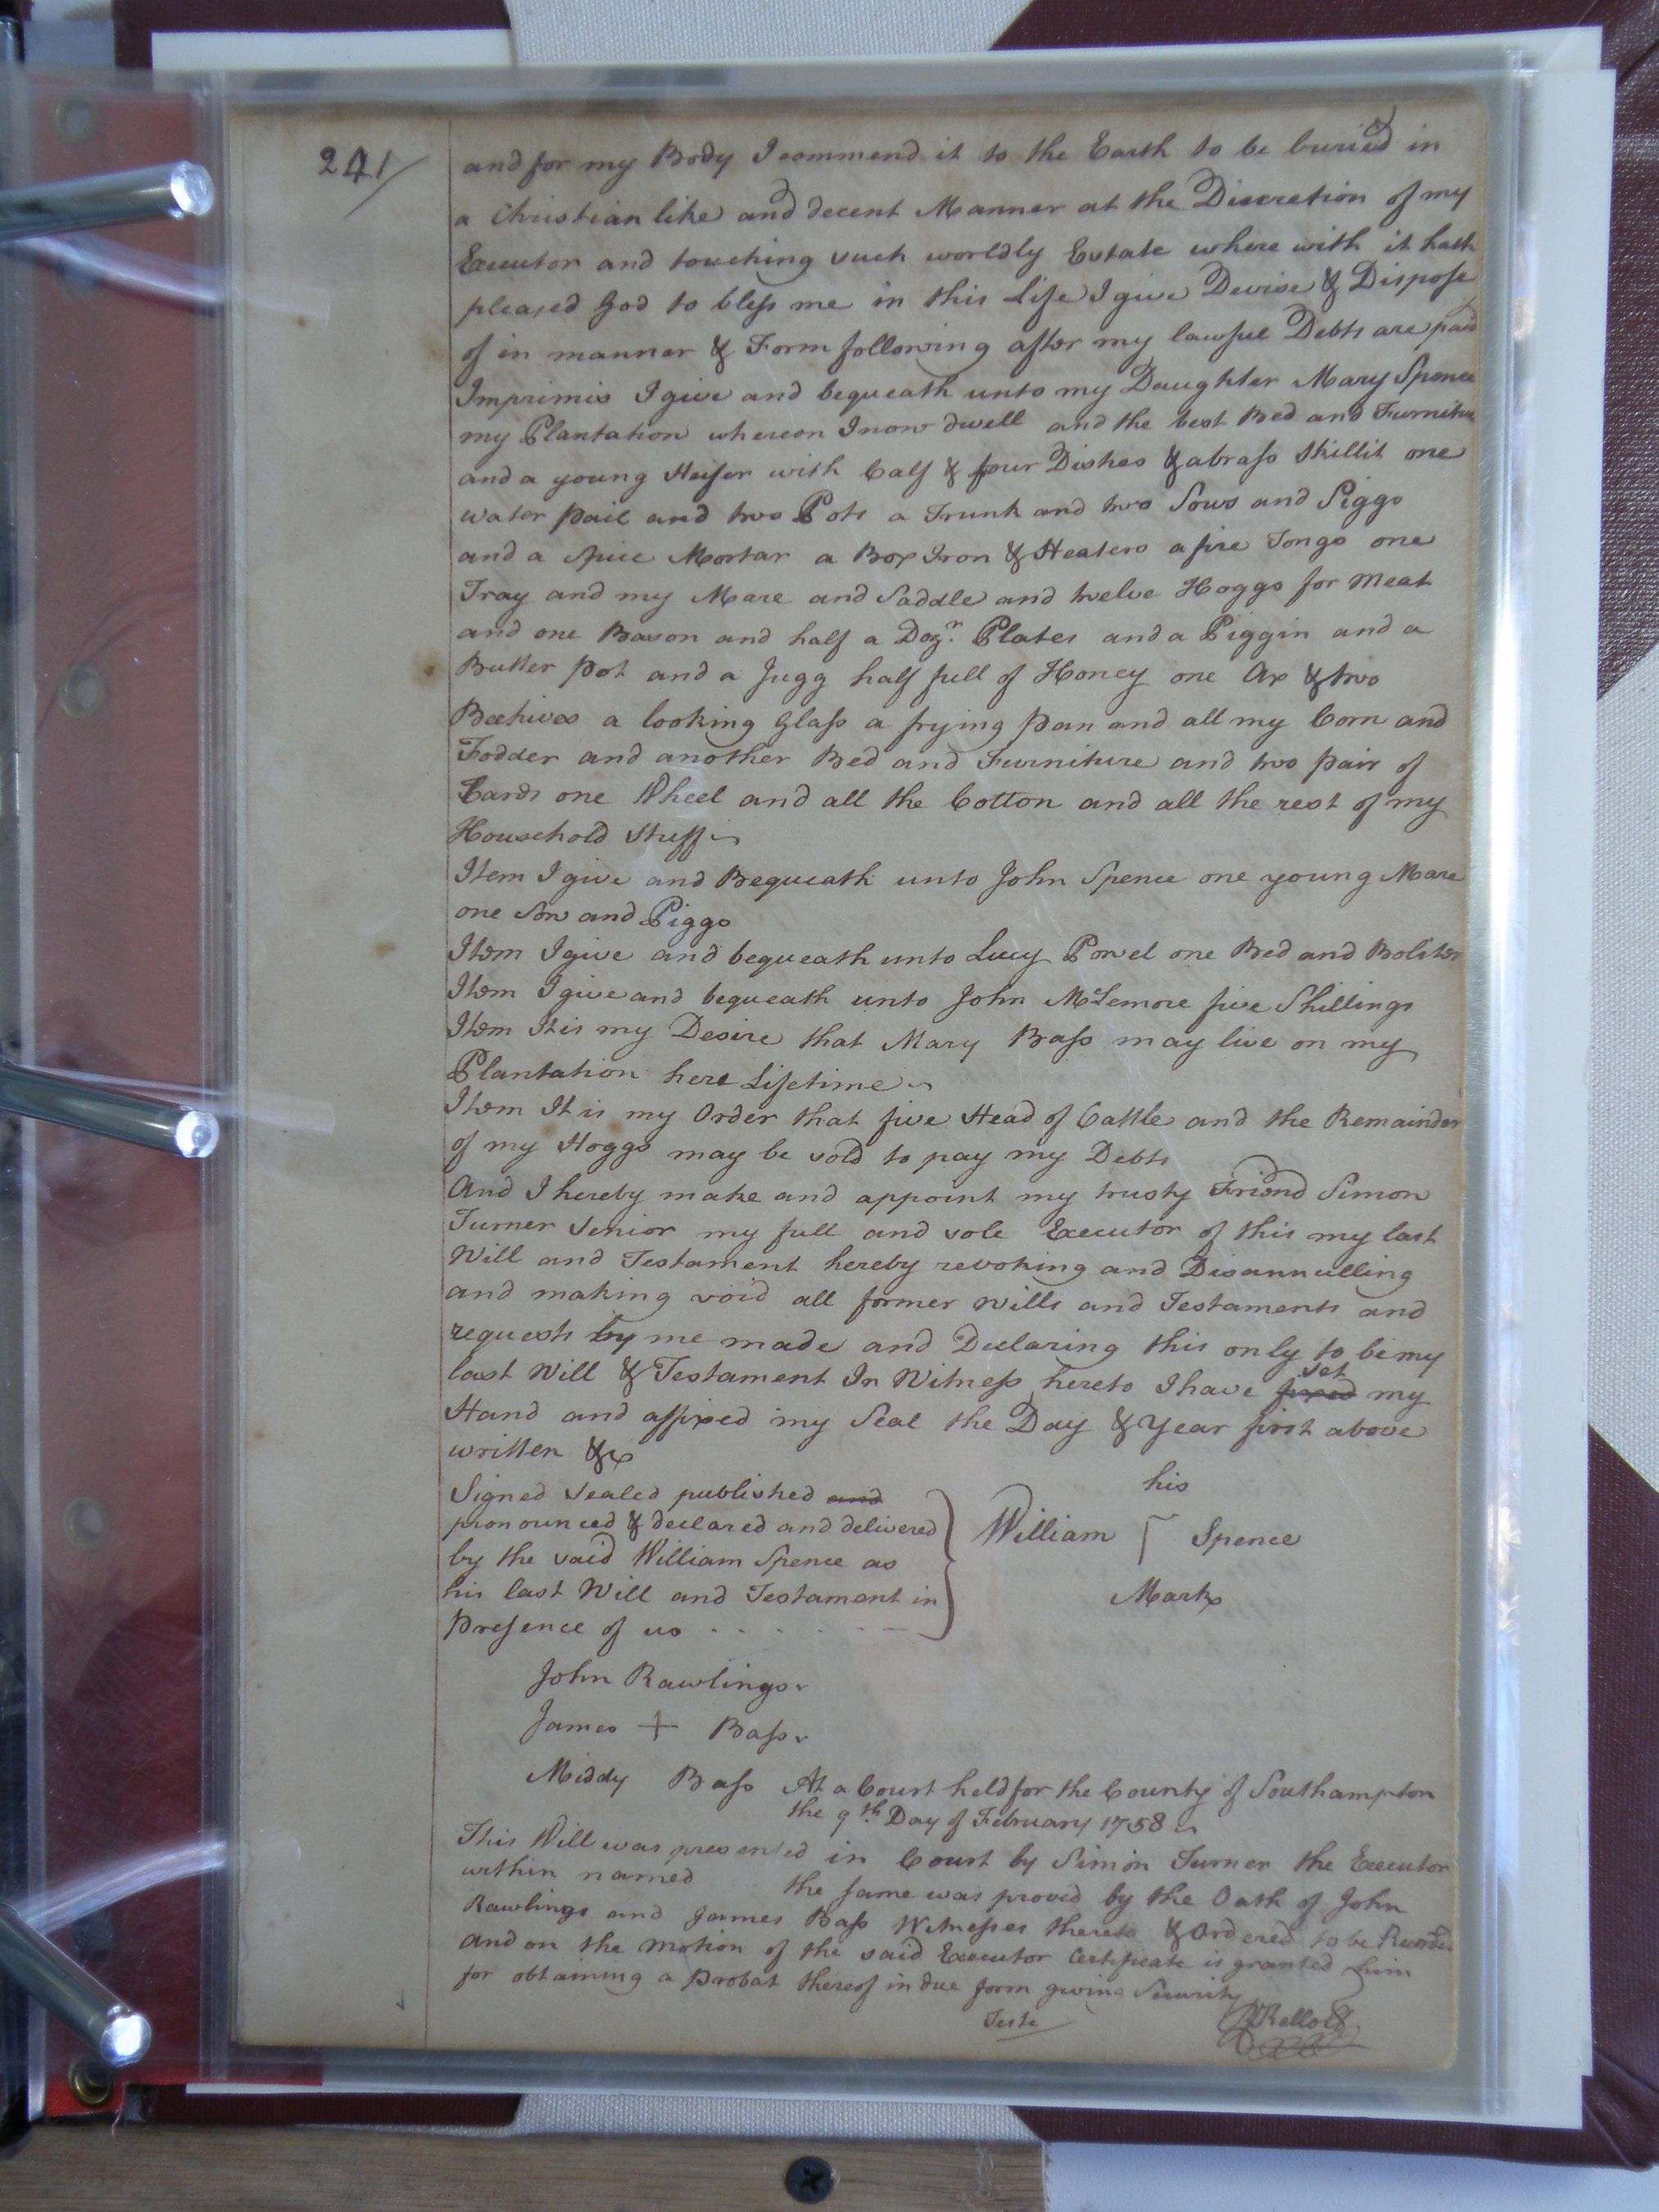 241/
and for my Body I commend it to the Earth to be buried in
a Christian like and decent Manner at the Discretion of my
Executor and touching such worldly Estate where with it hath
pleased God to bless me in this Life I give Devise & Dispose
of in manner & Form following after my lawful Debts are paid
Imprimis I give and bequeath unto my Daughter Mary Spence
my Plantation whereon I now dwell and the best Bed and Furniture
and a young Heifer with Calf & four Dishes & a brass Skillit one
water pail and two Pots a Trunk and two Sows and Piggs
and a Spice Mortar a Box Iron & Heaters a fire Tongs one
Tray and my Mare and Saddle and twelve Hoggs for meat
and one Bason and half a Dozn. Plates and a Piggin and a
Butter pot and a Jugg half full of Honey one Ax & two
Beehives a looking Glass a frying pan and all my Corn and
Fodder and another Bed and Furniture and two pair of
Cards one Wheel and all the Cotton and all the rest of my
Household Stuff
Item I give and Bequeath unto John Spence one young Mare
one Sow and Piggs
Item I give and bequeath unto Lucy Powel one Bed and Bolster
Item I give and bequeath unto John McLemore five Shillings
Item It is my Desire that Mary Bass may live on my
Plantation here Lifetime
Item It is my Order that five Head of Cattle and the Remainder
of my Hoggs may be sold to pay my Debts
And I hereby make and appoint my trusty Friend Simon
Turner Senior my full and sole Executor of this my last
Will and Testament hereby revoking and Disannulling
and making void all former wills and Testaments and
requests by me made and Declaring this only to be my
last Will & Testament In Witness hereto I have fixed set my
Hand and affixed my Seal the Day & Year first above
written &c
Signed Sealed published and
pronounced & declared and delivered
by the said William Spence as
his last Will and Testament in
Presence of us
his
William Spence
Mark
John Rawlings
James + Bass
Middy Bass
At a Court held for the County of Southampton
the 9th Day of February 1758
This Will was presented in Court by Simon Turner the Executor
within named the same was proved by the Oath of John
Rawlings and James Bass Witnesses thereto & Ordered to be Recorded
and on the Motion of the said Executor Certificate is granted him
for obtaining a Probat thereof in due form giving Security
Teste